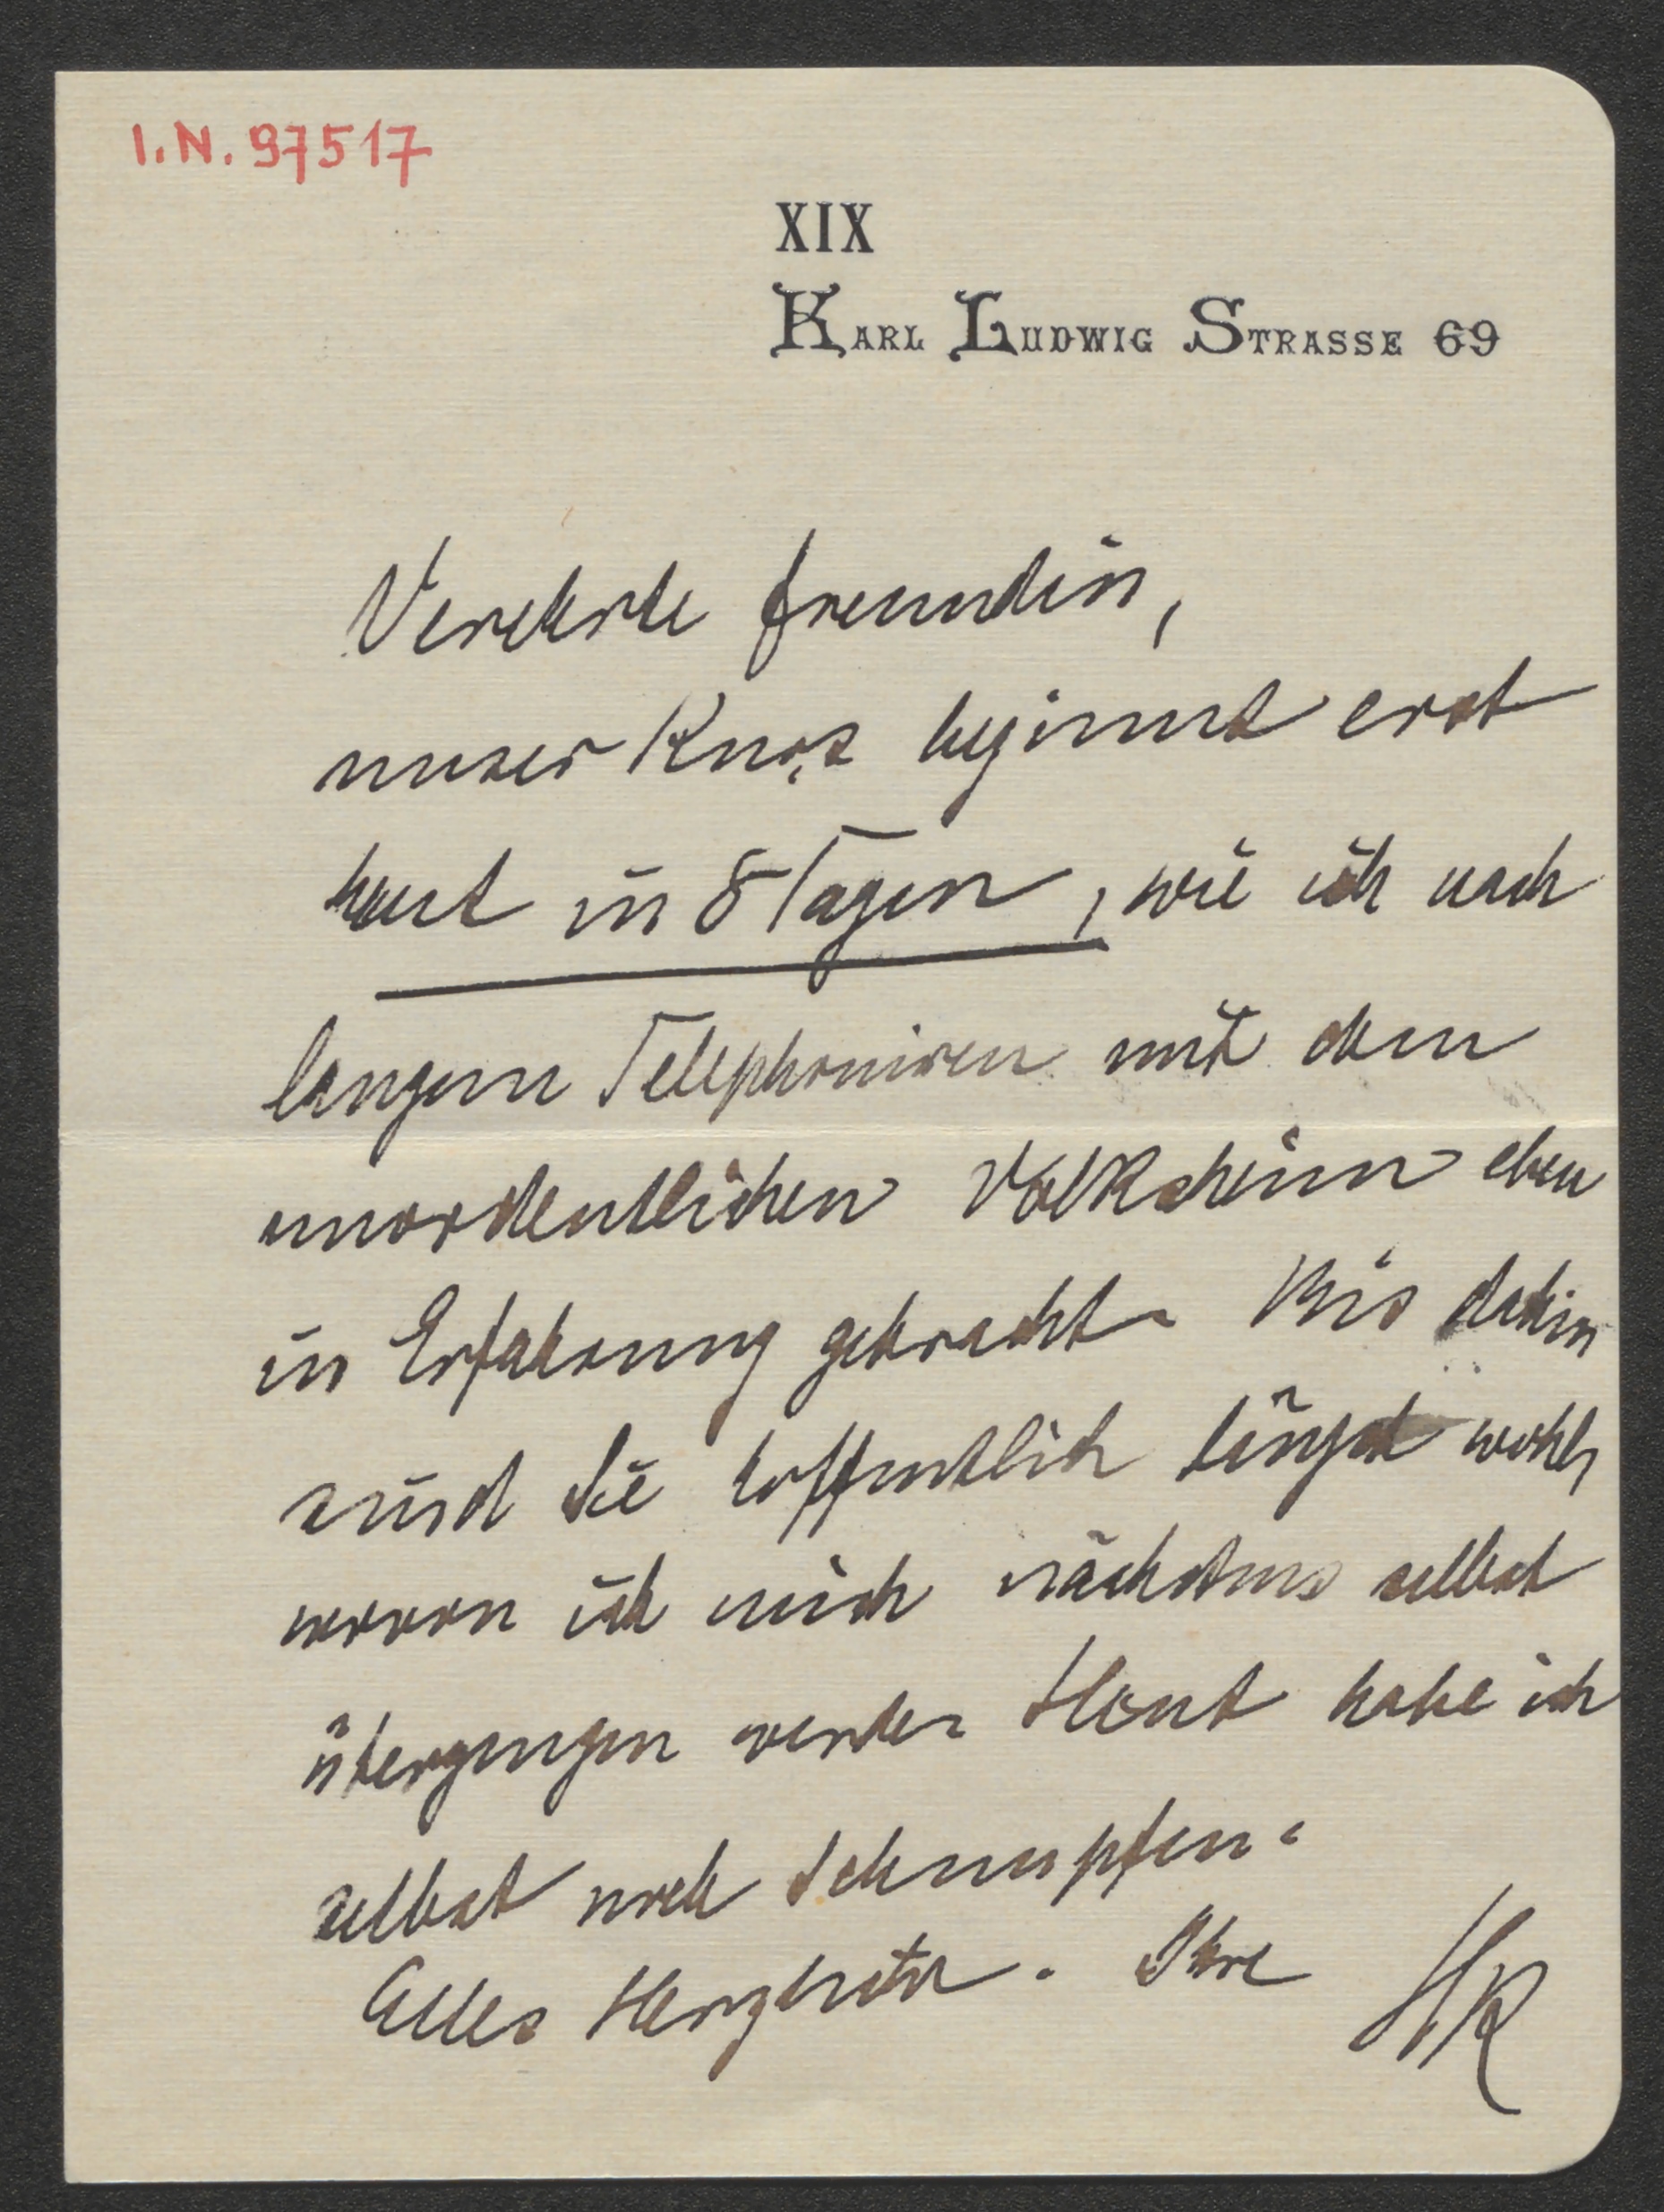 I.N. 97517
XIX
KARL LUDWIG STRASSE 69
Verehrte Freundin,
unser Kurs beginnt erst
heut in 8 Tagen, wie ich nach
langem Telephoniren mit dem
unordentlichen Volksheim eben
in Erfahrung gebracht. Bis dahin
sind Sie hoffentlich längst wohl,
wovon ich mich nächstens selbst
überzeugen werde. Heut habe ich
selbst noch Schnupfen.
Alles Herzlichste. Ihre HR